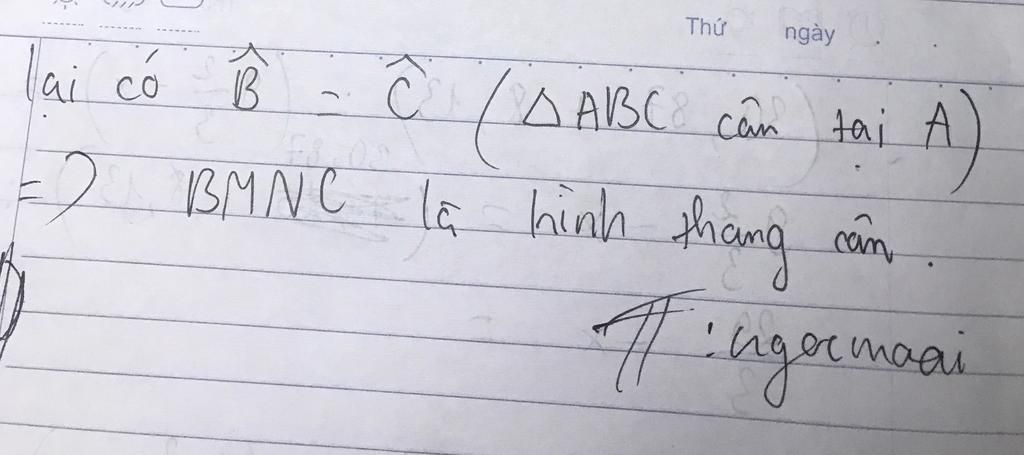 Thứ ngày
lại có B̂ = Ĉ (△ABC cân tại A)
=> BMNC là hình thang cân.
: ngocmaai